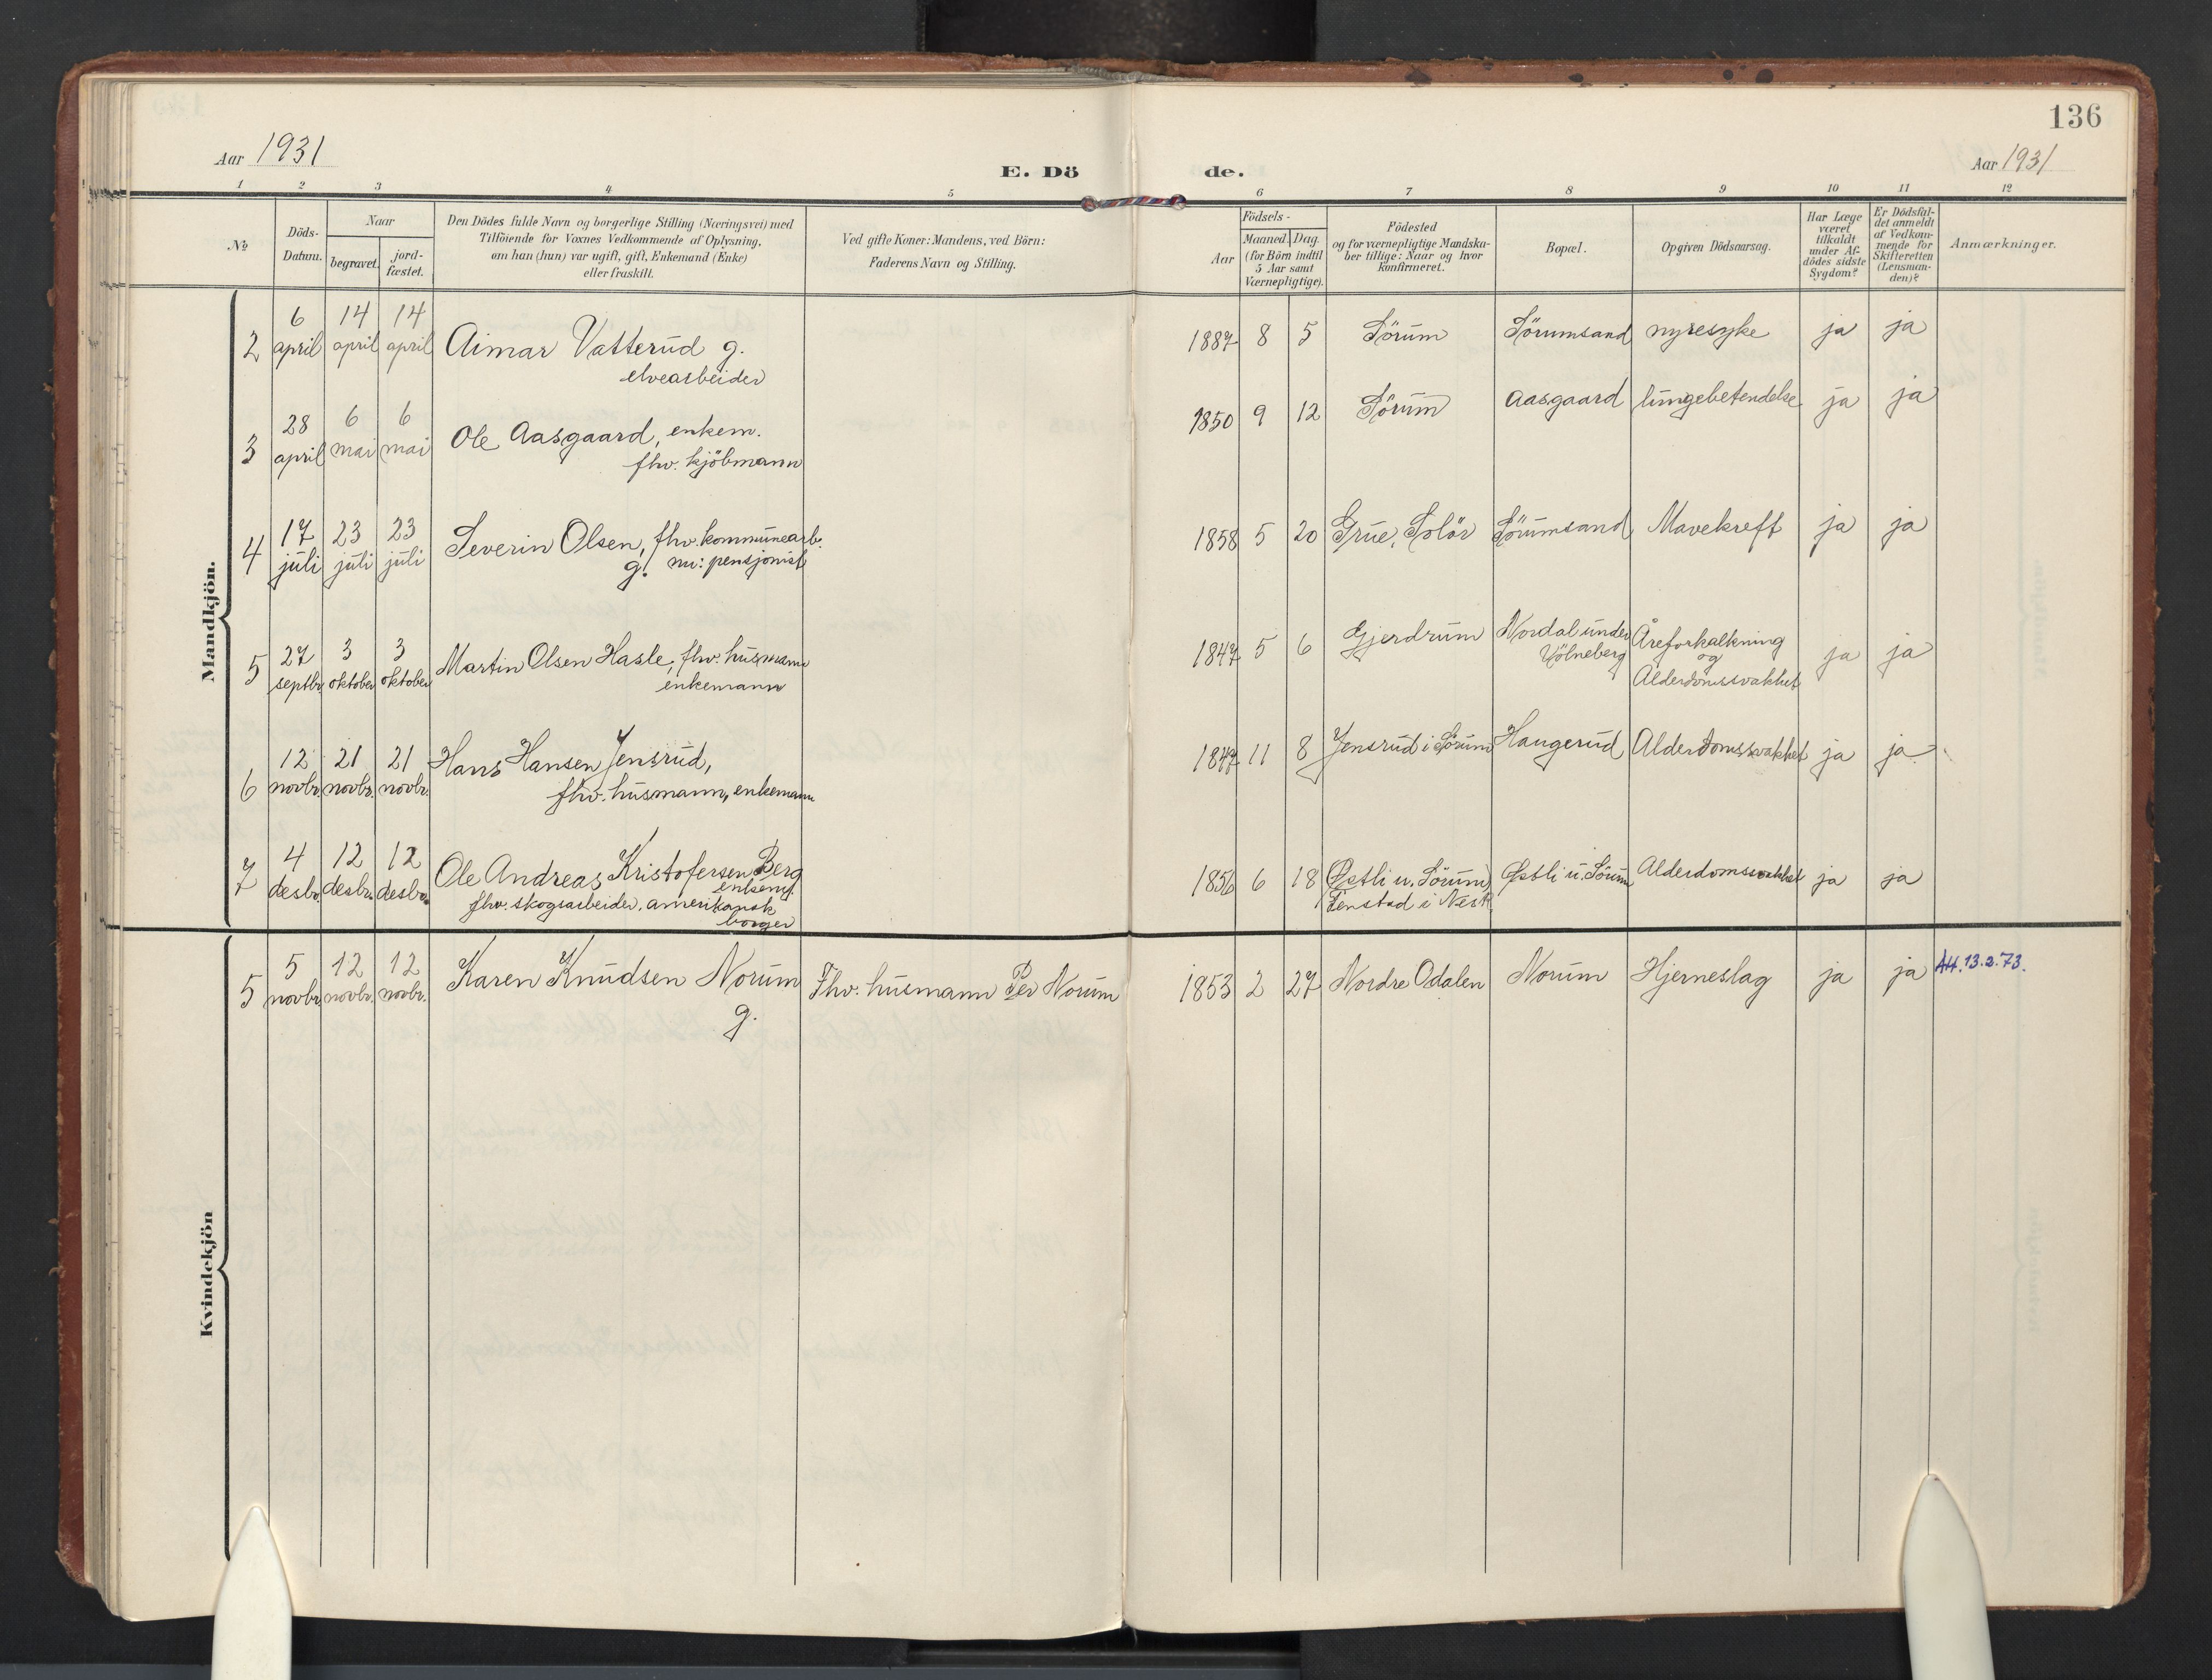 136
Aar 1931
E. Dö de.
Aar 1931
1 2 3 4 5 6 7 8 9 10 11 12
No
Döds-
Datum.
Naar
begravet.
jord-
fæstet.
Den Dödes fulde Navn og borgerlige Stilling (Næringsvei) med
Tilföiende for Voxnes Vedkommende af Oplysning,
om han (hun) var ugift, gift, Enkemand (Enke)
eller fraskilt.
Ved gifte Koner: Mandens, ved Börn:
Faderens Navn og Stilling.
Födsels-
Aar
Maaned. Dag
(for Börn indtil
5 Aar samt
Værnepligtige).
Födested
og for værnepligtige Mandska-
ber tillige: Naar og hvor
konfirmeret.
Bopæl.
Opgiven Dödsaarsag.
Har Læge
været
tilkaldt
under Af-
dödes sidste
Sygdom?
Er Dödsfal-
det anmeldt
af Vedkom-
mende for
Skifteretten
(Lensman-
den)?
Anmærkninger.
Mandkjön.
2 6 april 14 april 14 april Aimar Vatterud g.
elvearbeider
1887 8 5 Sörum Sörumsand nyresyke ja ja
3 28 april 6 mai 6 mai Ole Aasgaard, enkem.
fhv. kjöbmann
1850 9 12 Sörum Aasgaard lungebetendelse ja ja
4 17 juli 23 juli 23 juli Severin Olsen, fhv. kommunearb.
g. nu: pensjonist
1858 5 20 Grue, Solör Sörumsand Mavekreft ja ja
5 27 septbr. 3 oktober 3 oktober Martin Olsen Hasle, fhv. husmann
enkemann
1847 5 6 Gjerdrum Nordal under
Völneberg
Åreforkalkning
og
Alderdomssvakhet
ja ja
6 12 novbr. 21 novbr. 21 novbr. Hans Hansen Jensrud,
fhv. husmann, enkemann
1847 11 8 Jensrud i Sörum Haugerud Alderdomssvakhet ja ja
7 4 desbr. 12 desbr. 12 desbr. Ole Andreas Kristofersen Berg
enkem.
fhv. skogsarbeider, amerikansk
borger
1856 6 18 Østli u. Sörum
Fenstad i Nes R.
Østli u. Sörum Alderdomssvakhet ja ja
Kvindekjön
5 5 novbr. 12 novbr. 12 novbr. Karen Knudsen Norum
g.
Fhv. husmann Per Norum
1853 2 27 Nordre Odalen Norum Hjerneslag ja ja Att. 13.2.73.